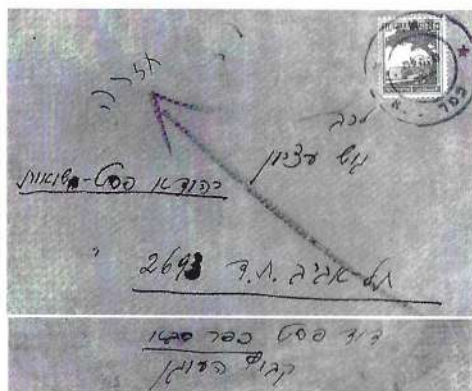 חזרה
לכב
גוש עציון
יהודא פסט-משואות
תל אביב ת.ד 2693
דוד פסט כפר סבא
קבוץ העוגן